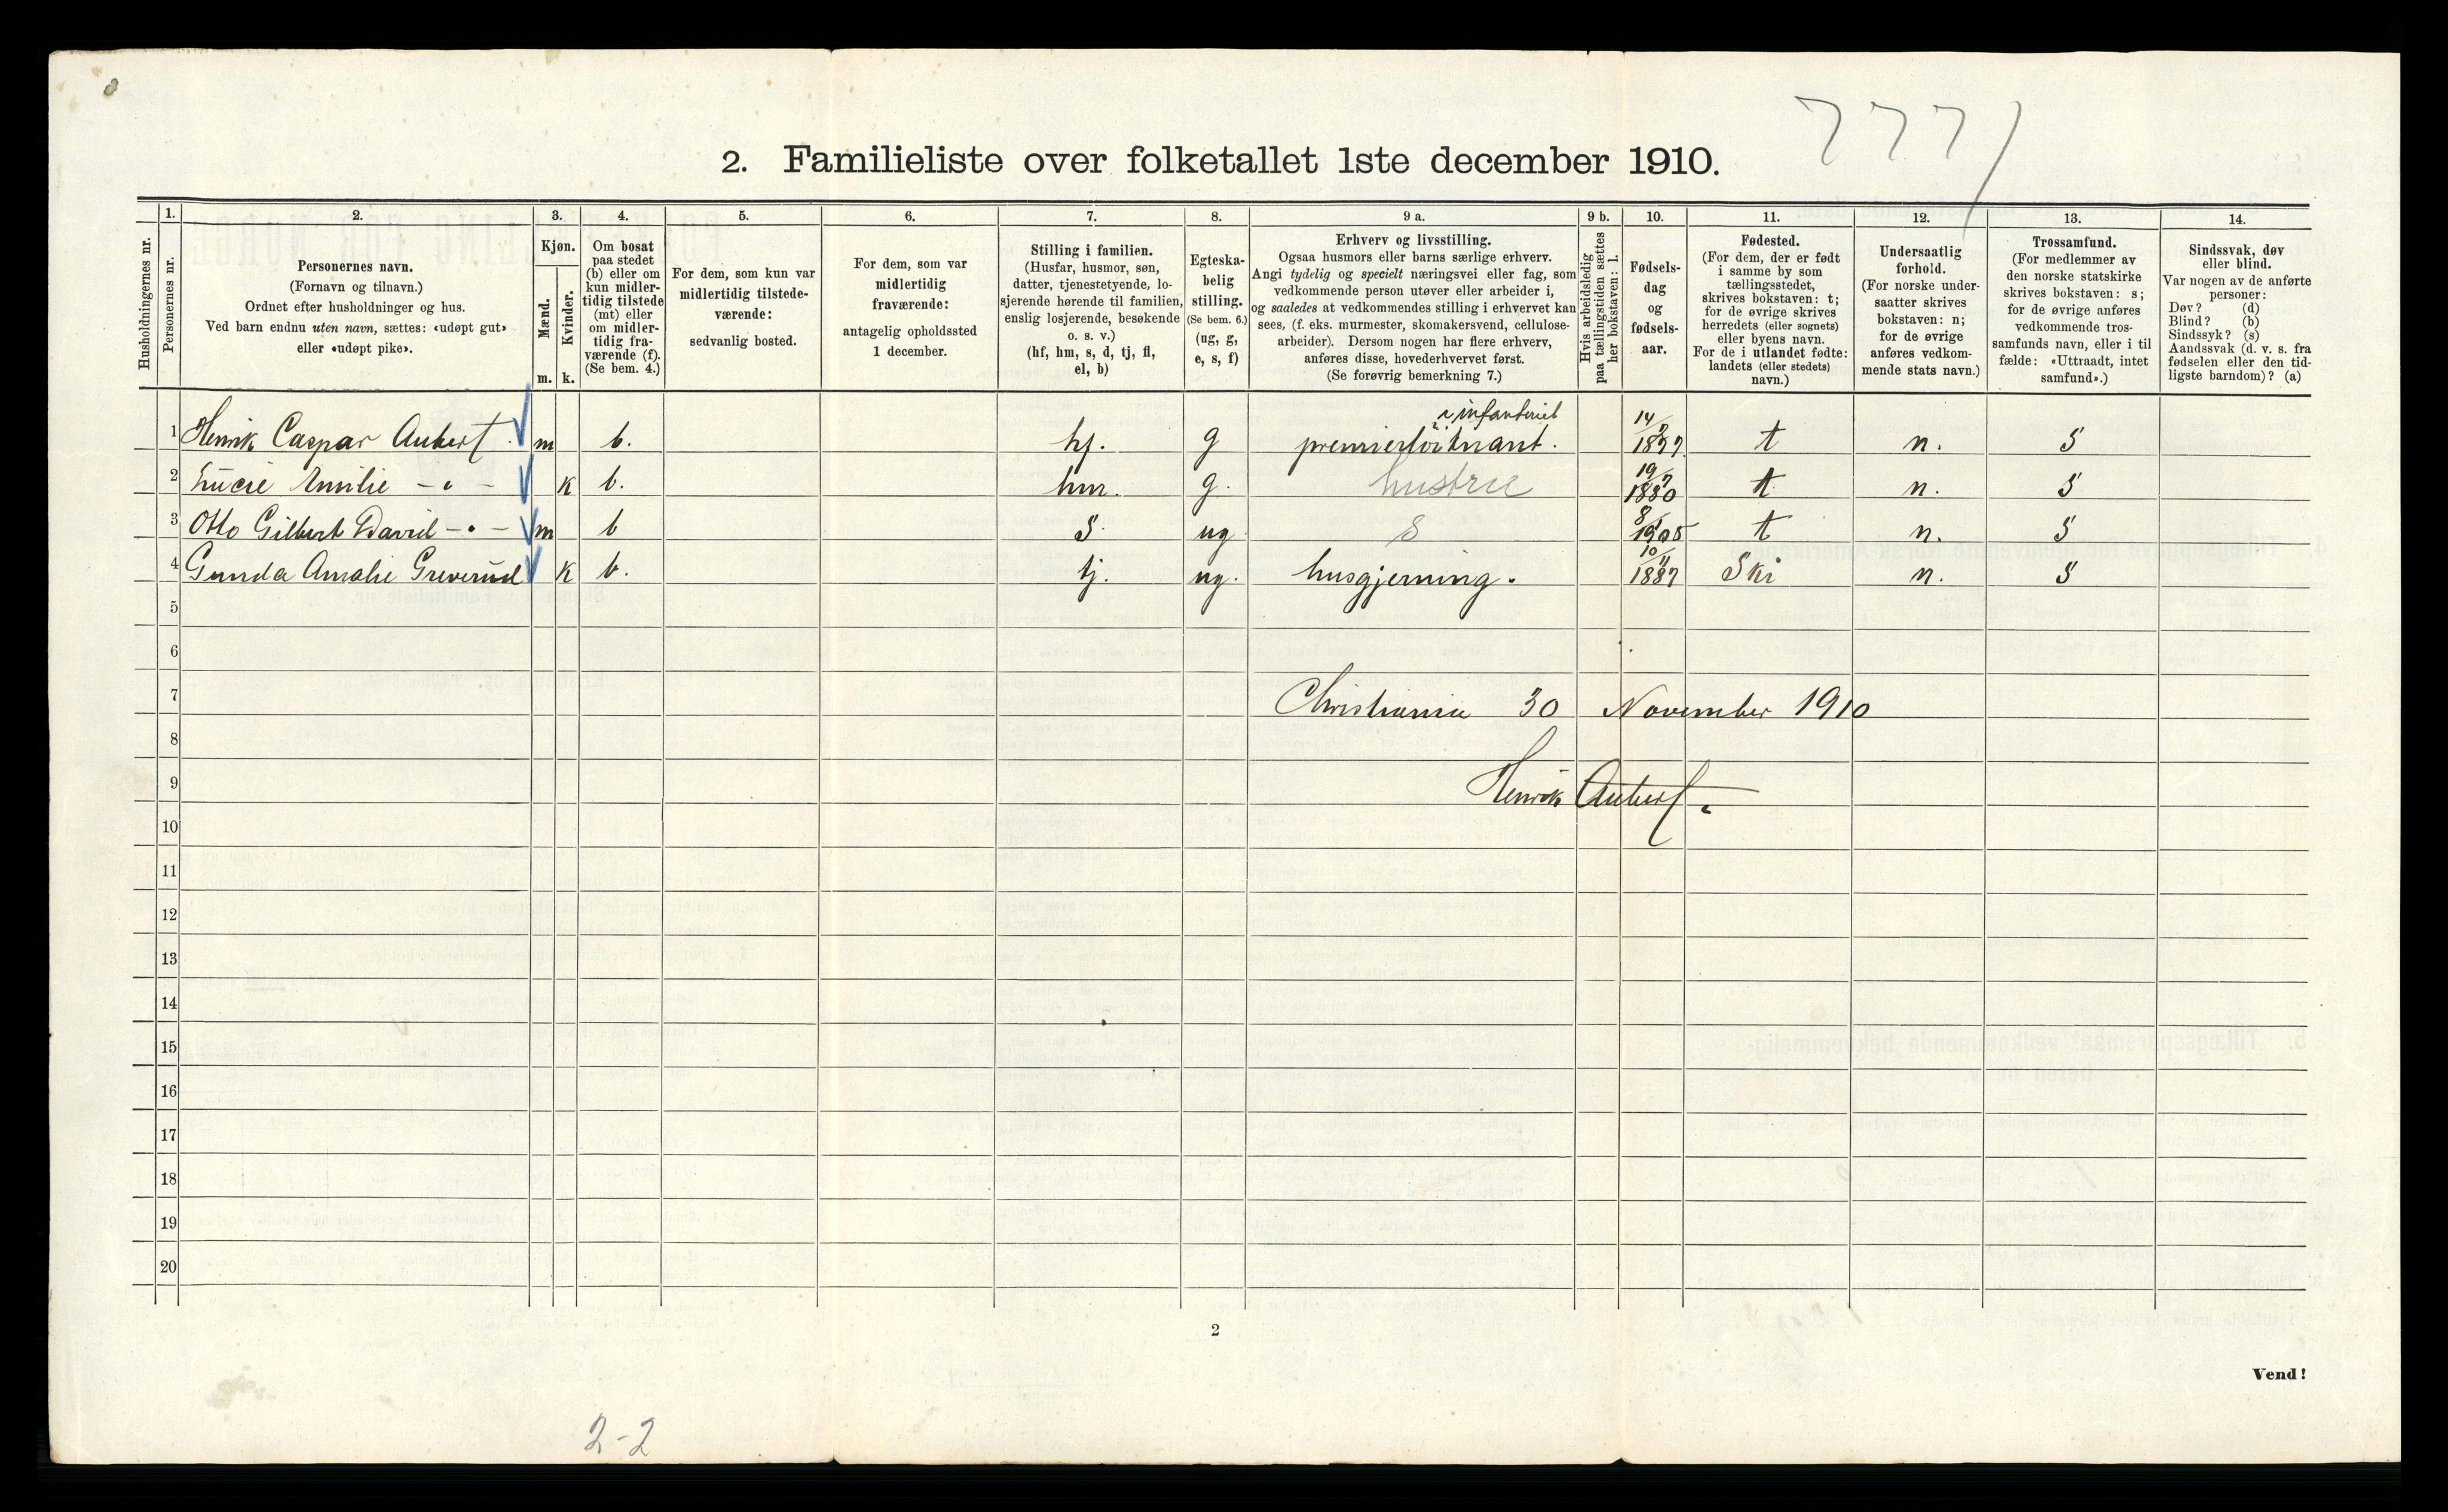 7771
2. Familieliste over folketallet 1ste december 1910.
Husholdningernes nr.
1.
Personernes nr.
2.
Personernes navn.
(Fornavn og tilnavn.)
Ordnet efter husholdninger og hus.
Ved barn endnu uten navn, sættes: «udøpt gut»
eller «udøpt pike».
3.
Kjøn.
Mænd.
Kvinder.
m. k.
4.
Om bosat
paa stedet
(b) eller om
kun midler-
tidig tilstede
(mt) eller
om midler-
tidig fra-
værende (f).
(Se bem. 4.)
5.
For dem, som kun var
midlertidig tilstede-
værende:
sedvanlig bosted.
6.
For dem, som var
midlertidig
fraværende:
antagelig opholdssted
1 december.
7.
Stilling i familien.
(Husfar, husmor, søn,
datter, tjenestetyende, lo-
sjerende hørende til familien,
enslig losjerende, besøkende
o. s. v.)
(hf, hm, s, d, tj, fl,
el, b)
8.
Egteska-
belig
stilling.
(Se bem. 6.)
(ug, g,
e, s, f)
9 a.
Erhverv og livsstilling.
Ogsaa husmors eller barns særlige erhverv.
Angi tydelig og specielt næringsvei eller fag, som
vedkommende person utøver eller arbeider i,
og saaledes at vedkommendes stilling i erhvervet kan
sees, (f. eks. murmester, skomakersvend, cellulose-
arbeider). Dersom nogen har flere erhverv,
anføres disse, hovederhvervet først.
(Se forøvrig bemerkning 7.)
9 b.
Hvis arbeidsledig
paa tællingstiden sættes
her bokstaven: l.
10.
Fødsels-
dag
og
fødsels-
aar.
11.
Fødested.
(For dem, der er født
i samme by som
tællingsstedet,
skrives bokstaven: t;
for de øvrige skrives
herredets (eller sognets)
eller byens navn.
For de i utlandet fødte:
landets (eller stedets)
navn.)
12.
Undersaatlig
forhold.
(For norske under-
saatter skrives
bokstaven: n;
for de øvrige
anføres vedkom-
mende stats navn.)
13.
Trossamfund.
(For medlemmer av
den norske statskirke
skrives bokstaven: s;
for de øvrige anføres
vedkommende tros-
samfunds navn, eller i til
fælde: «Uttraadt, intet
samfund».)
14.
Sindssvak, døv
eller blind.
Var nogen av de anførte
personer:
Døv? (d)
Blind? (b)
Sindssyk? (s)
Aandssvak (d. v. s. fra
fødselen eller den tid-
ligste barndom)? (a)
1 Henrik Caspar Aubert m b. hf. g premierløitnant. i infanteriet t n. S
2 Lucie Emilie - " - k b. hm. g. hustru 19/7 1880 t n. S
3 Otto Gilbert David - " - m b S. ug S 1905 t n. S
4 Gunda Amalie Greverud k b. tj. ug. husgjerning. 10/11 1887 Ski n. S
5
6
7 Christiania 30 November 1910
8
9 Henrik Aubert.
10
11
12
13
14
15
16
17
18
19
20
2
Vend!
2-2